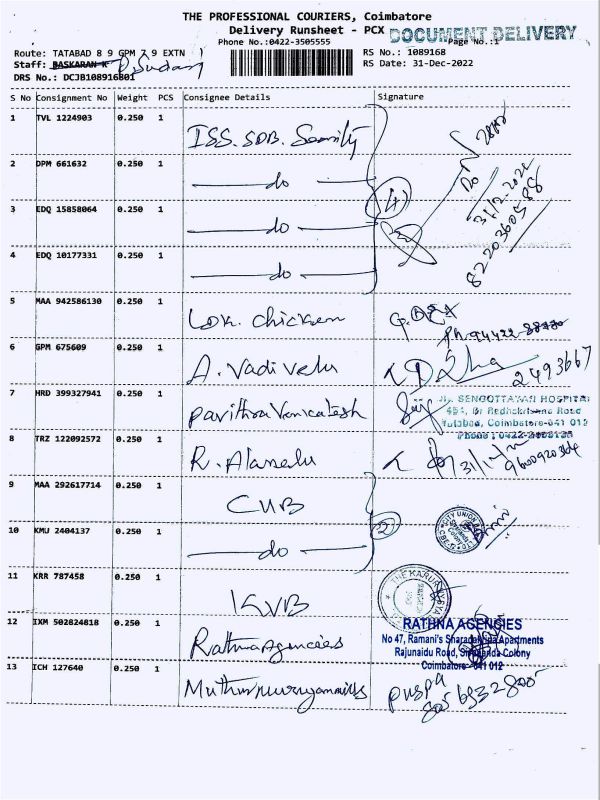 THE PROFESSIONAL COURIERS, Coimbatore
Delivery Runsheet - PCX
DOCUMENT DELIVERY
Phone No.:0422-3505555
Page No.:1
Route: TATABAD 8 9 GPM 7 9 EXTN
RS No.: 1089168
Staff: BASKARAN K
RS Date: 31-Dec-2022
DRS No.: DCJB108916801
S No Consignment No Weight PCS Consignee Details Signature
1 TVL 1224903 0.250 1 ISS. SDB. Security
2 DPM 661632 0.250 1 do
31/12/2022
3 EDQ 15858064 0.250 1 do (4)
8220360588
4 EDQ 10177331 0.250 1 do
5 MAA 942586130 0.250 1 Lok. chicken
6 GPM 675609 0.250 1 A. Vadivelu
2493667
7 HRD 399327941 0.250 1 Pavithra Venkatesh
SENGOTTAIYAN HOSPITAL
Tatabad, Coimbatore-641 012
8 TRZ 122092572 0.250 1 R. Alamelu
9 MAA 292617714 0.250 1 CUB
10 KMU 2404137 0.250 1 do (2)
CITY UNION
11 KRR 787458 0.250 1 KVB
THE KARUR VYSYA
12 IXM 502824818 0.250 1 Rathna Agencies
RATHNA AGENCIES
No 47, Ramani's Sharadalaya Apartments
Rajunaidu Road, Sivananda Colony
Coimbatore-641 012
13 ICH 127640 0.250 1 Muthumurugan mills
puspa